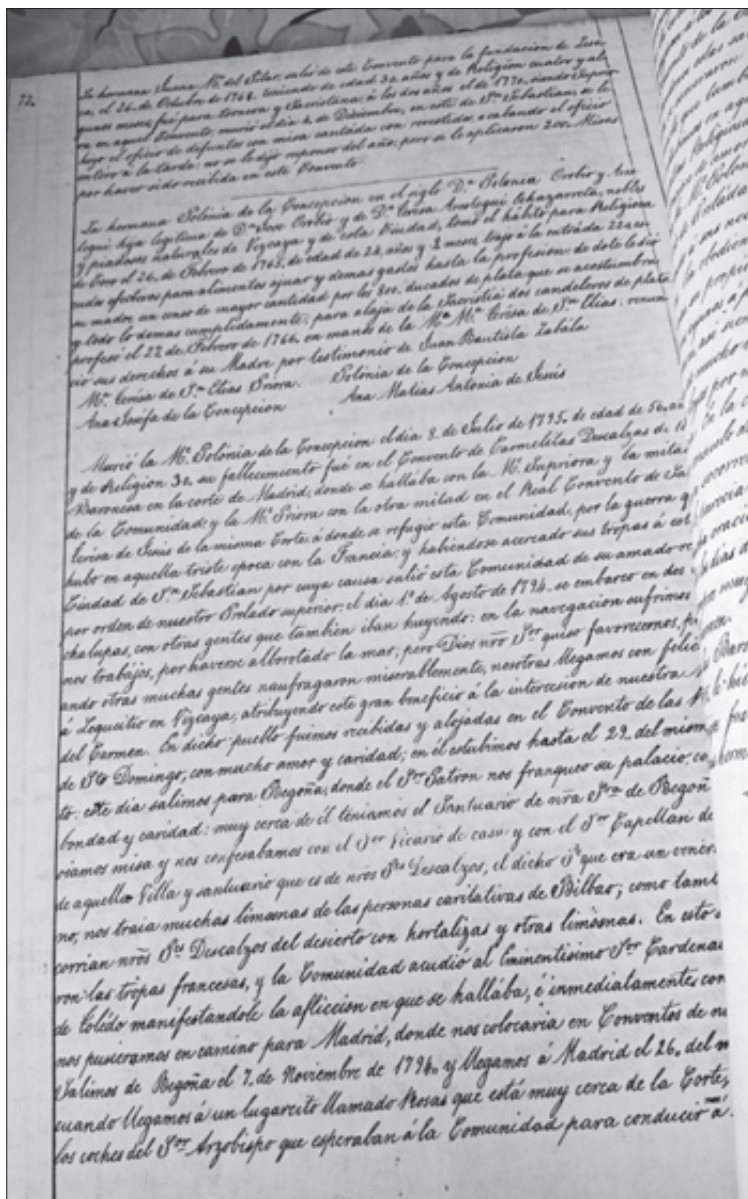 72.
La hermana Juana Mª. del Pilar, salió de este Convento para la fundacion de
ca, el 26. de Octubre de 1768. teniendo de edad 32 años y de Religion cuatro y al-
gunos meses, fué para tornera y Sacristana, á los dos años el de 1770. siendo Super
ra en aquel Convento, murió el dia 2. de Diciembre, en este de Sn. Sebastian, se le
hizo el oficio de difuntos con misa cantáda con revestidos, acabando el oficio
entiero á la tarde: no se le dijo responso del año, pero se le aplicaron 200. Misas
por haver sido recibida en este Convento
La hermana Polónia de la Concepcion en el siglo D.ª Polonia Orobio y Aros
tegui hija legitima de D.n Jose Orobio y de D.ª Teresa Arostegui Echazarreta, nobles
y piadosos naturales de Vizcaya y de esta Ciudad, tomó el hábito para Religiosa
de Coro el 26. de Febrero de 1765. de edad de 24. años y 2 meses, trajo á la entráda 22
cuda efectivos para alimentos ajuar y demas gastos hasta la profesion de dote le dió
su madre, un censo de mayor cantidad por los 800. ducados de plata que se acostumbran
y todo lo demas cumplidamente; para alaja de la Sacristia dos candeleros de plata
profesó el 22 de Febrero de 1766. en manos de la Mª. Mª. Teresa de Sn. Elias: renun
ció sus derechos á su Madre por testimonio de Juan Bautista Zabála
Mª. Teresa de Sn. Elias Priora. Polónia de la Concepcion
Ana Josefa de la Concepcion Ana Matias Antonia de Jesús
Murió la Mª. Polónia de la Concepcion el dia 8. de Julio de 1795. de edad de 54. añ
y de Religion 30. su fallecimiento fué en el Convento de Carmelitas Descalzas de la
Baronesa en la corte de Madrid, donde se hallába con la Mª. Supriora y la mitad
de la Comunidad; y la Mª. Priora con la otra mitad en el Real Convento de Sa
Teresa de Jesus de la misma Corte á donde se refugió esta Comunidad, por la guerra q
hubo en aquella triste epoca con la Francia: y habiendose acercado sus tropas á est
Ciudad de Sn. Sebastian por cuya causa salió esta Comunidad de su amado re
por orden de nuestro Prelado superior: el dia 1.º de Agosto de 1794. se embarcó en dos
chalupas, con otras gentes que tambien iban huyendo: en la navegacion sufrimos
nos trabajos, por haverse alborotado la mar; pero Dios nrõ Sor. quiso favorecernos, p
ando otras muchas gentes naufragaron miserablemente, nosotras llegamos con felic
á Lequeitio en Vizcaya, atribuyendo este gran beneficio á la intercesion de nuestra
del Carmen. En dicho pueblo fuimos recibidas y alojadas en el Convento de las
de Sto Domingo, con mucho amor y caridad; en él estubimos hasta el 29. del mism
to: este dia salimos para Begoña, donde el Sor. Patron nos franqueó su palacio, co
bondad y caridad: muy cerca de él teniamos el Santuario de nrã Sra. de Begoñ
viamos misa y nos confesabamos con el Sor Vicario de casa: y con el Sor Capellan de
de aquella Villa y santuario que es de nrõs Ps. Descalzos, el dicho Sr. que era un vener
no, nos traia muchas limosnas de las personas caritativas de Bilbao; como tam
corrian nrõs Ps. Descalzos del desierto con hortalizas y otras limósnas. En esto
ron las tropas francesas, y la Comunidad acudió al Eminentisimo Sor Cardenal
de Tolédo manifestandole la afliccion en que se hallába, é inmediatamente con
nos pusieramos en camino para Madrid, donde nos colocaria en Conventos de n
Salimos de Begoña el 7. de Noviembre de 1794. y llegamos á Madrid el 26. del m
cuando llegamos á un lugarcito llamado Rosas que está muy cerca de la Corte,
los coches del Sor Arzobispo que esperaban á la Comunidad para conducir á